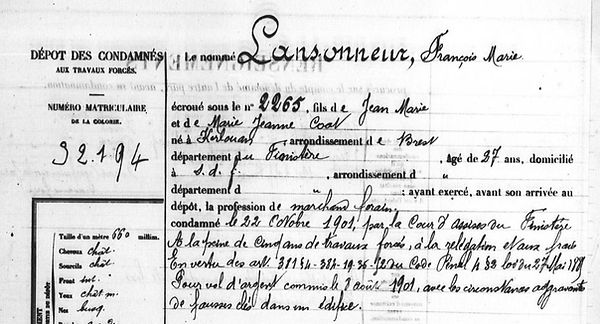 DÉPOT DES CONDAMNÉS
AUX TRAVAUX FORCÉS.
NUMÉRO MATRICULAIRE
DE LA COLONIE.
32.194
Taille d'un mètre 660 millim.
Cheveux chât.
Sourcils chât.
Front
Yeux chât m.
Nez busq.
Le nommé Lansonneur, François Marie
écroué sous le nº 2265, fils de Jean Marie
et de Marie Jeanne Coat
né à Kerlouan arrondissement de Brest
département du Finistère, âgé de 27 ans, domicilié
à S.d.f., arrondissement d "
département d " : ayant exercé, avant son arrivée au
dépôt, la profession de marchand forain.
condamné le 22 Octobre 1901, par la Cour d'assises du Finistère
A la peine de Cinq ans de travaux forcés, à la rélégation et aux frais
En vertu des art. 381 §4-384-19-36- du Code Pénal 4 §2 loi du 27 Mai
Pour vol d'argent commis le 2 août 1901, avec les circonstances aggravantes
de fausses clés dans un édifice.